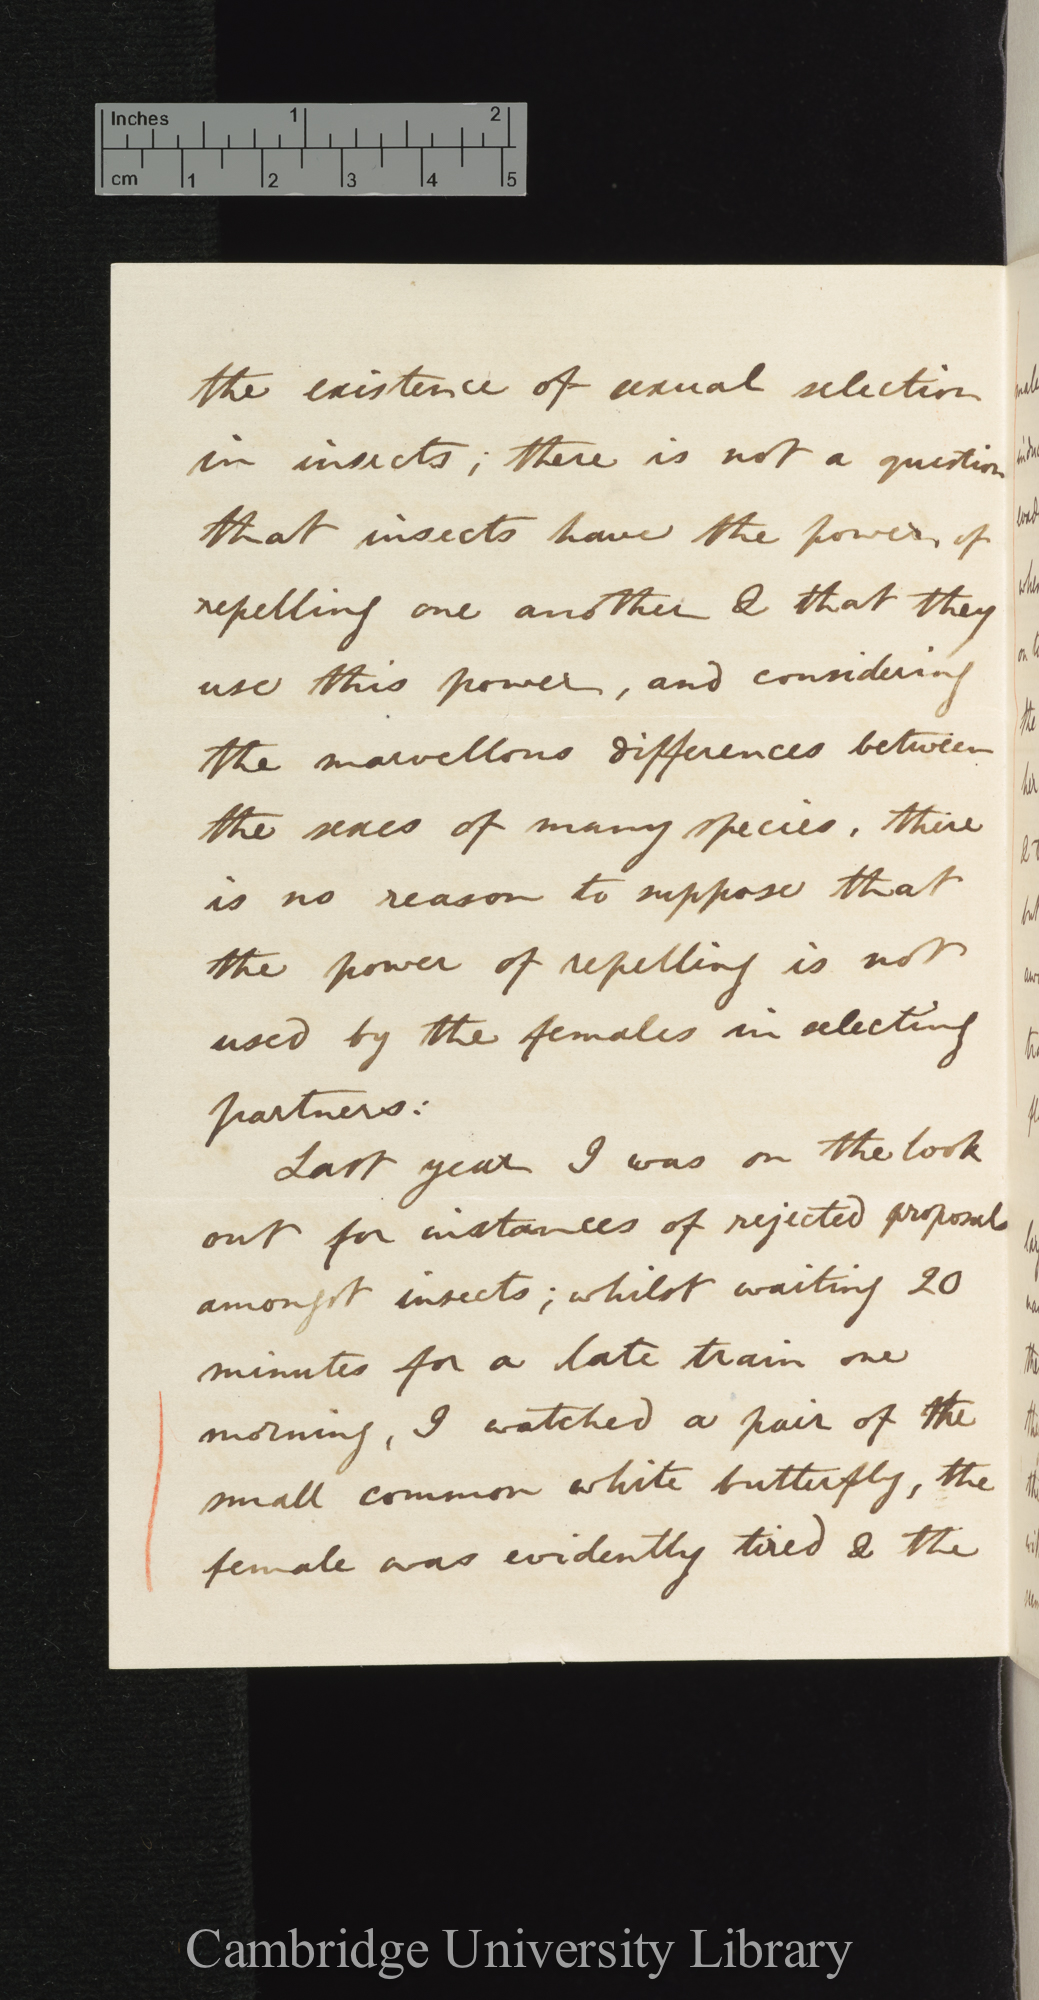 Inches 1 2
cm 1 2 3 4 5
the existence of sexual selection
in insects; there is not a question
that insects have the power of
repelling one another & that they
use this power, and considering
the marvellous differences between
the sexes of many species, there
is no reason to suppose that
the power of repelling is not
used by the females in selecting
partners:
Last year I was on the look
out for instances of rejected proposals
amongst insects; whilst waiting 20
minutes for a late train one
morning, I watched a pair of the
small common white butterfly, the
female was evidently tired & the
the
her
but
Cambridge University Library